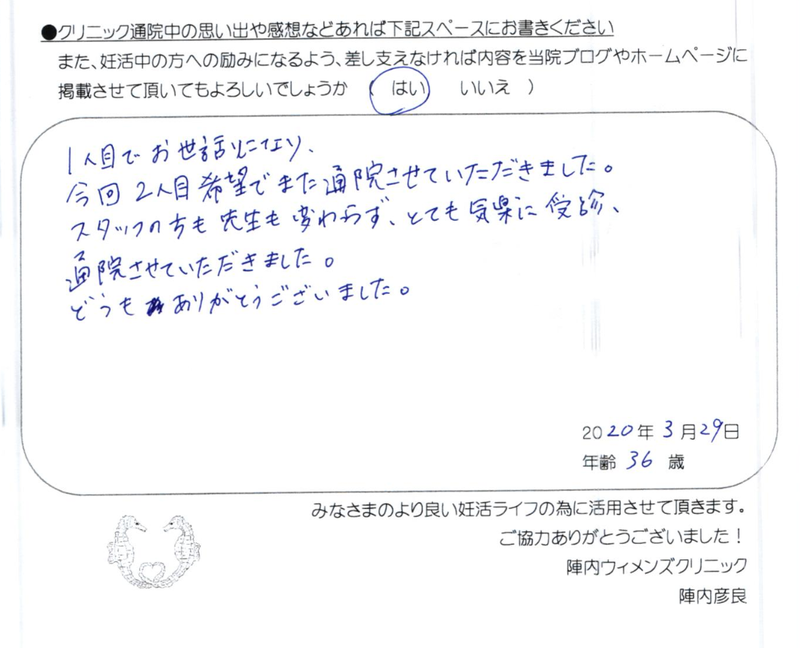 ●クリニック通院中の思い出や感想などあれば下記スペースにお書きください
また、妊活中の方への励みになるよう、差し支えなければ内容を当院ブログやホームページに
掲載させて頂いてもよろしいでしょうか ( はい いいえ )
1人目でお世話になり、
今回2人目希望でまた通院させていただきました。
スタッフの方も先生も変わらず、とても気楽に受診、
通院させていただきました。
どうもありがとうございました。
2020年3月29日
年齢 36 歳
みなさまのより良い妊活ライフの為に活用させて頂きます。
ご協力ありがとうございました!
陣内ウィメンズクリニック
陣内彦良